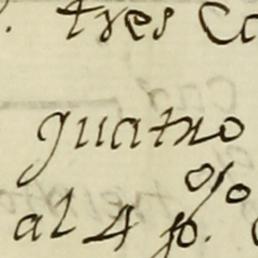 tres
quatro
al 4 p%.